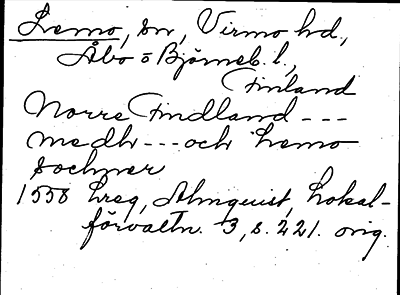 Lemo, sn, Virmo hd,
Åbo o Björneb. l.,
Finland
Norre Findland ---
medh --- och Lemo
sochner
1558 hreg, Almquist, Lokal-
förvaltn. 3, s. 221. orig.